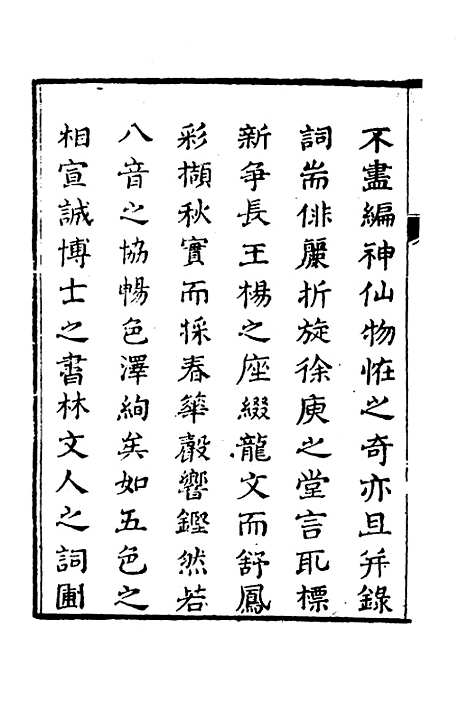 不盡編神仙物恠之奇亦且并錄
詞耑俳麗折旋徐庾之堂言取標
新爭長王楊之座綴龍文而舒鳳
彩擷秋實而採春華觳響鏗然若
八音之協暢色澤絢矣如五色之
相宣誠博士之書林文人之詞圃